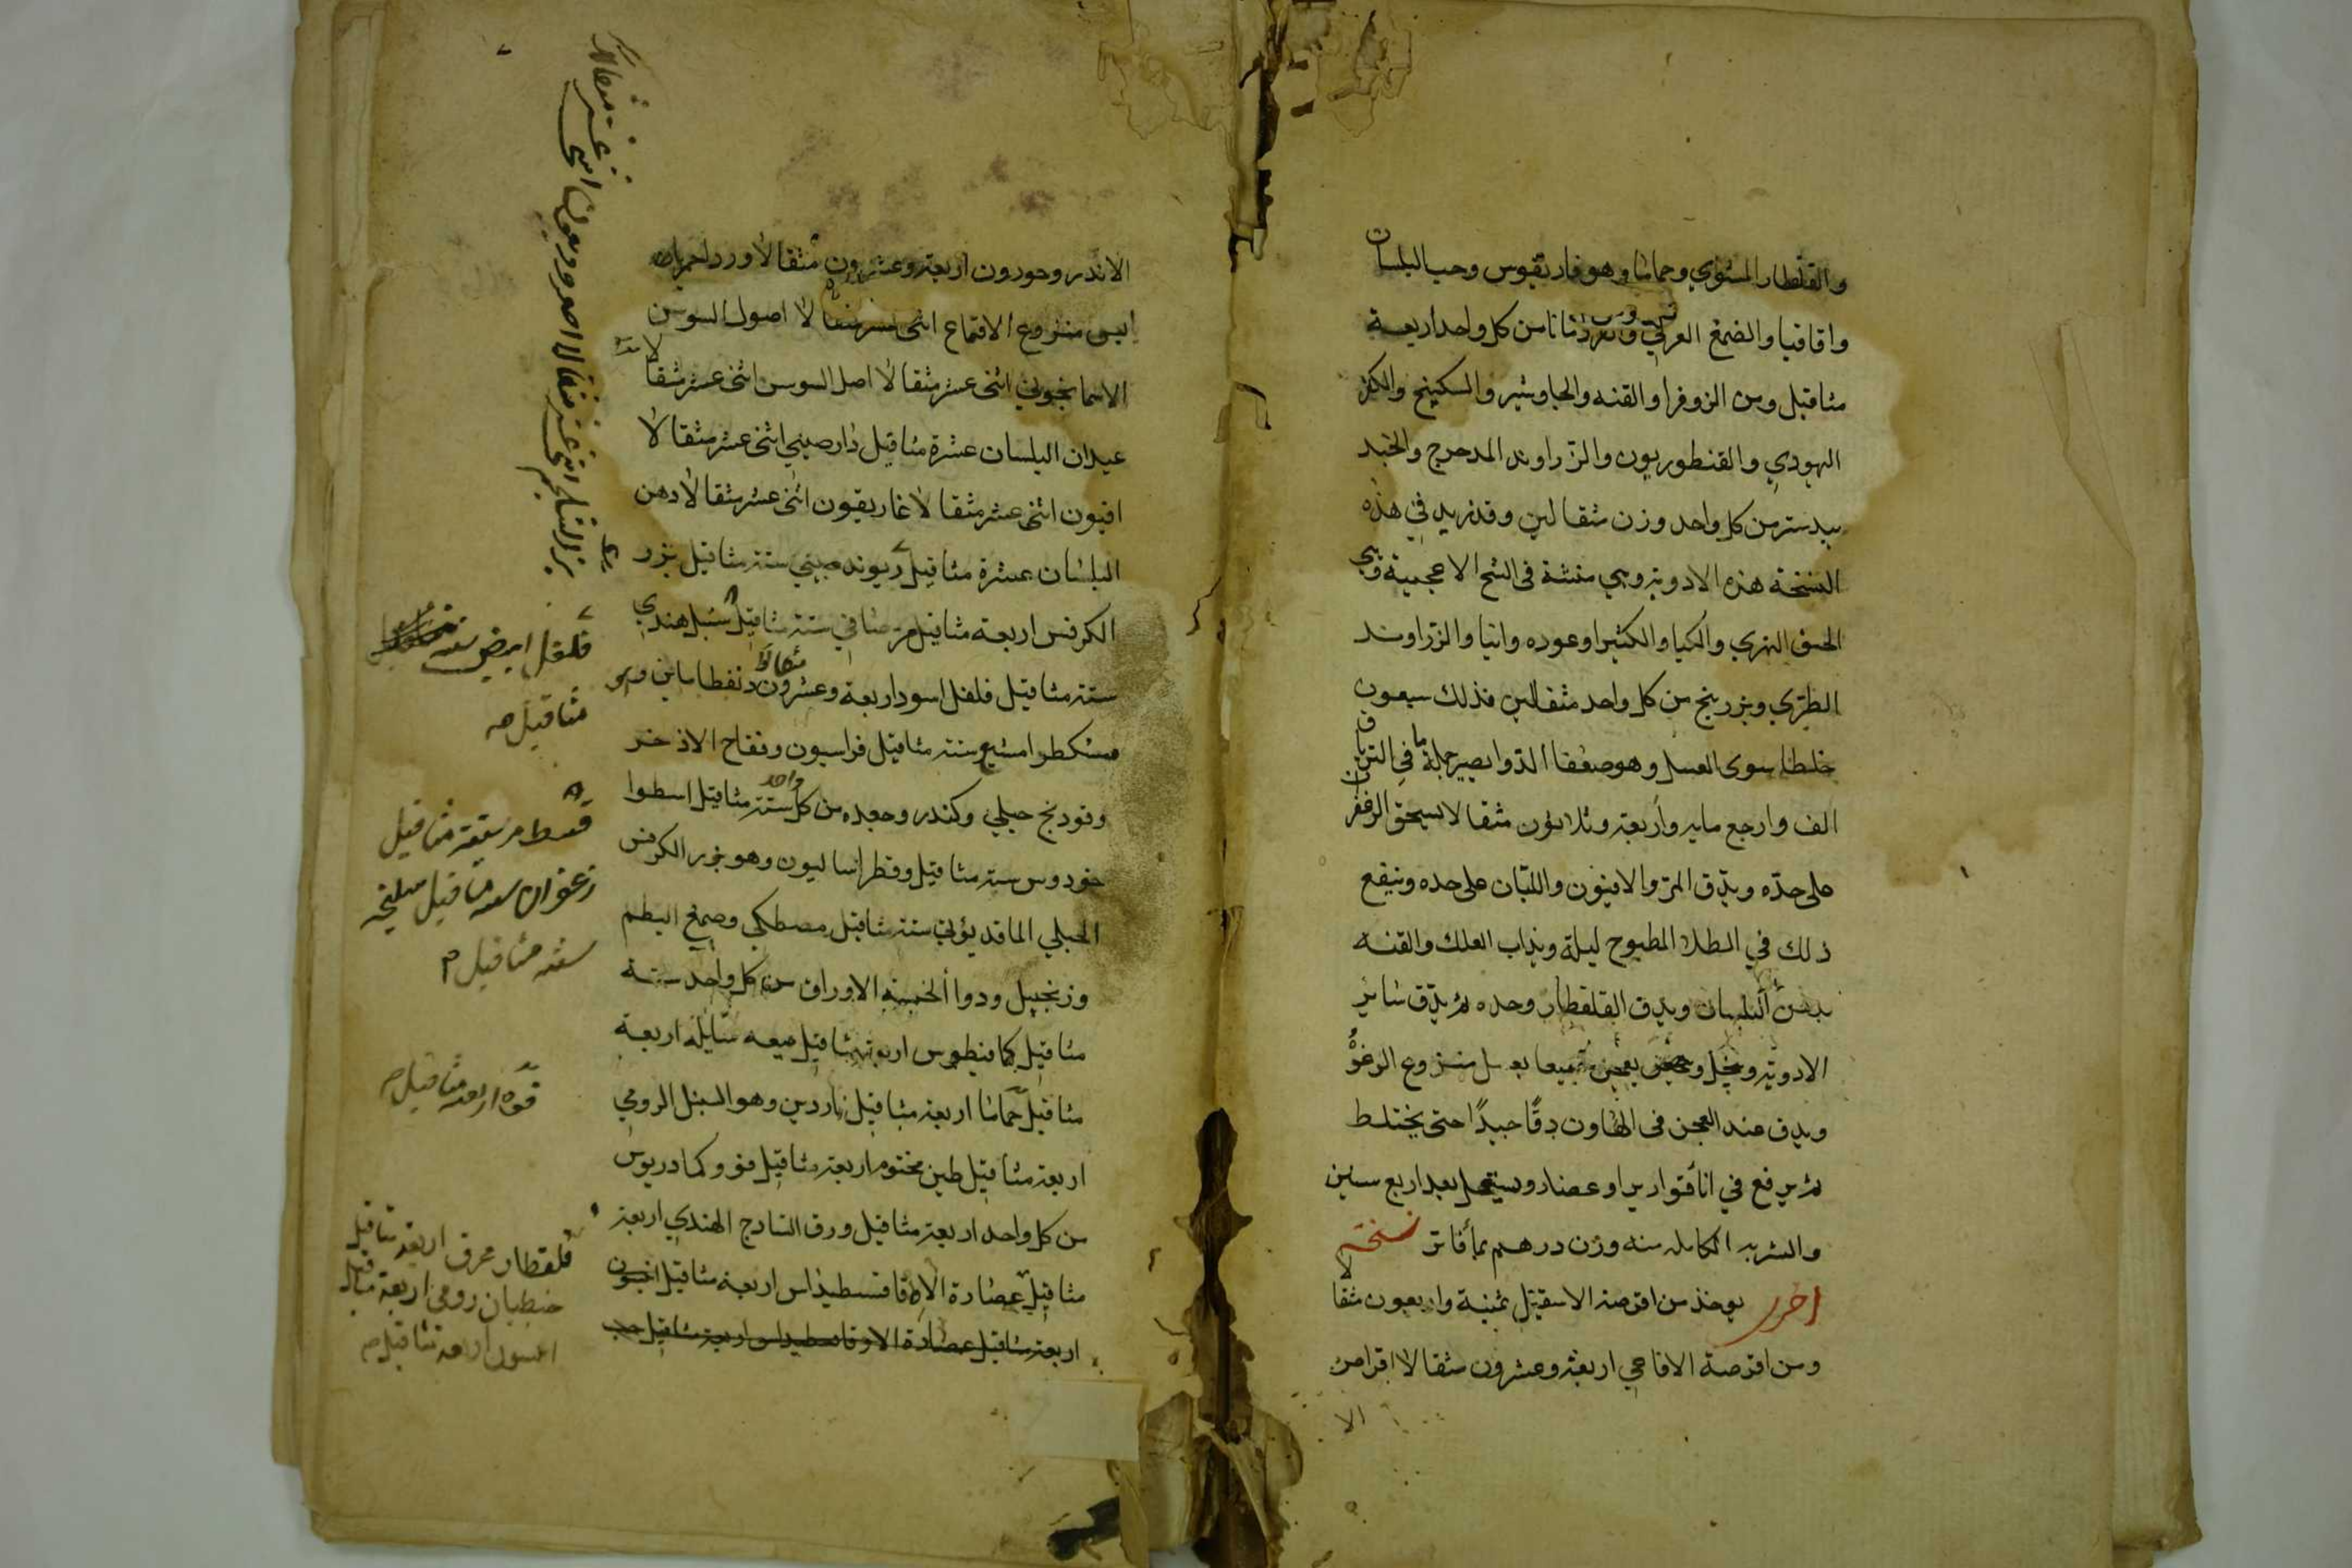 والقلقطار المشوي وحماما وهو فاربقيوس وحب البلسان
واقاقيا والصمغ العربي وقردمانا من كل واحد اربعة
مثاقيل ومن الزوفرا والقنه والجاوشير والسكبينج والكفر
اليهودي والقنطوريون والزراوند المدحرج والجند
بيدستر من كل واحد وزن مثقالين وقد زيد في هذه
النسخة هذه الادوية وهي مثبتة في النسخ الاعجمية وهي
الحبق النهري والكيا والكثيرا وعوده وانيا والزراوند
الطري وبزر بنج من كل واحد مثقالين فذلك سبعون
خلطا سوى العسل وهو ضعفا الدوا يصير جملة ما في الترياق
الف واربع مايه واربعة وثلاثون مثقالا يسحق الزعفران
على حده ويدق المر والافيون واللبان على حده وينقع
ذلك في الطلا المطبوخ ليلة ويذاب العلك والقنه
بدهن البلسان ويدق القلقطار وحده ثم يدق سائر
الادويه وينخل ويعجن جميعا بعسل منزوع الرغوة
ويدق عند العجن في الهاون دقا جيدا حتى يختلط
ثم يرفع في انا قوارير او غضار ويستعمل بعد اربع سنين
والشربه الكامله منه وزن درهم بماء فاتر نسخة
اخرى يوخذ من اقرصة الاسقيل ثمنية واربعون مثقالا
ومن اقرصة الافاعي اربعة وعشرون مثقالا اقراص
الا
الاندروحورون اربعة وعشرون مثقالا ورد احمر
يابس منزوع الاقماع اثنى عشر مثقالا اصول السوسن
الاسمانجوني اثنى عشر مثقالا اصل السوسن اثنى عشر مثقالا
عيدان البلسان عشرة مثاقيل دارصيني اثنى عشر مثقالا
افيون اثنى عشر مثقالا غاريقون اثنى عشر مثقالا دهن
البلسان عشرة مثاقيل ريوند صيني ستة مثاقيل بزر
الكرفس اربعة مثاقيل مر صافي ستة مثاقيل سنبل هندي
ستة مثاقيل فلفل اسود اربعة وعشرون مثقالا
مشكطرامشيع ستة مثاقيل فراسيون وفقاح الاذخر
وفودنج جبلي وكندر وجعده من كل واحد ستة مثاقيل اسطوا
خودوس ستة مثاقيل وفطراساليون وهو بزر الكرفس
الجبلي الماقدوني ستة مثاقيل مصطكي وصمغ البطم
وزنجبيل ودوا الخمسة الاوراق من كل واحد ستة
مثاقيل كمافيطوس اربعة مثاقيل ميعه سايلة اربعة
مثاقيل حماما اربعة مثاقيل ناردين وهو السنبل الرومي
اربعة مثاقيل طين مختوم اربعة مثاقيل فو وكمادريوس
من كل واحد اربعة مثاقيل ورق السادج الهندي اربعة
مثاقيل عصارة الاوقاقسطيداس اربعة مثاقيل
اربعة مثاقيل عصارة الاوقاقسطيداس اربعة مثاقيل حب
بزر السلجم اثنى عشر مثقالا
فلفل ابيض ستة
مثاقيل صه
قسط مر ستة مثاقيل
زعفران ستة مثاقيل سليخه
ستة مثاقيل
فوه اربعة مثاقيل
قلقطار محرق اربعة مثاقيل
جنطيان رومي اربعة مثاقيل
انيسون اربعة مثاقيل